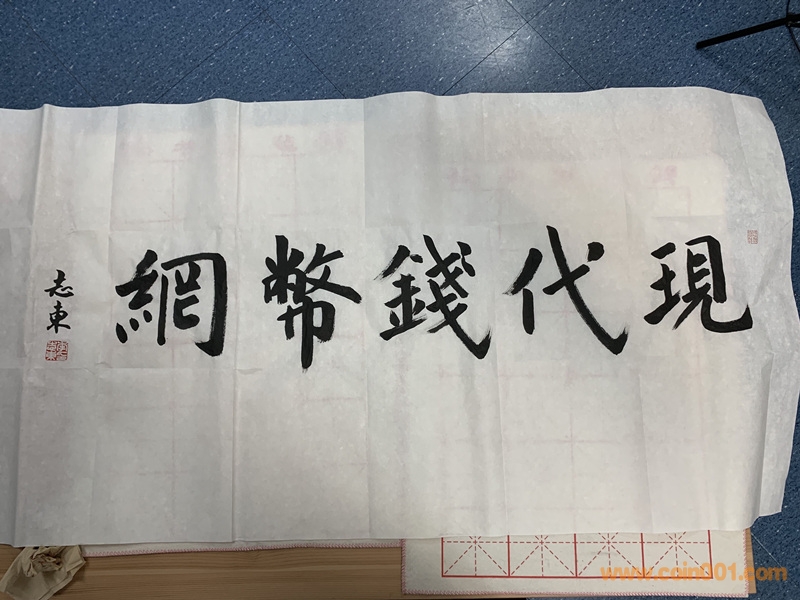 現代錢幣網
志東
www.coin001.com